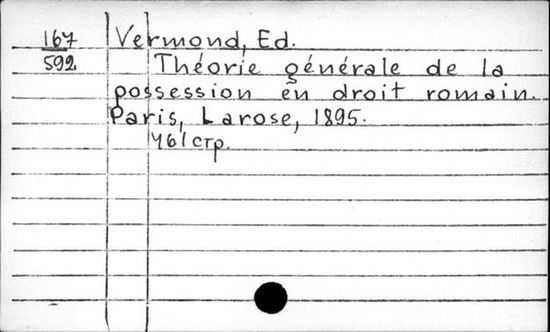 167 Vermond, Ed.
592 Théorie générale de la
possession en droit romain.
Paris, Larose, 1895.
461 стр.